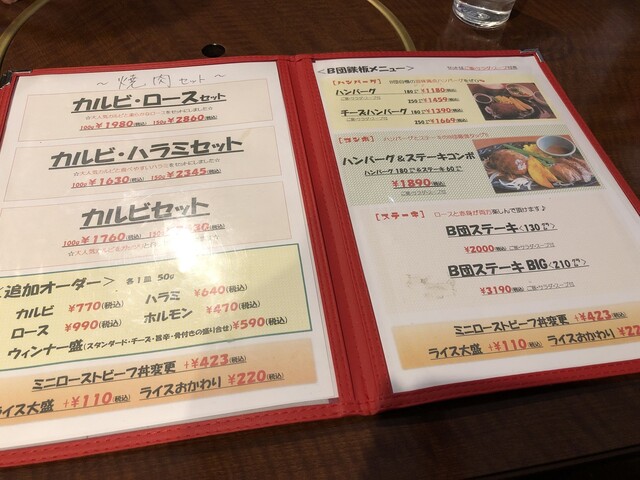 ～ 焼肉セット ～
カルビ・ロースセット
100g ¥1980(税込) 150g ¥2860(税込)
カルビ・ハラミセット
100g ¥1630(税込) 150g ¥2345(税込)
カルビセット
100g ¥1760(税込)
＜追加オーダー＞ 各1皿 50g
カルビ ¥770(税込) ハラミ ¥640(税込)
ロース ¥990(税込) ホルモン ¥470(税込)
ウィンナー盛(スタンダード・チーズ・旨辛・骨付きの盛り合せ) ¥590(税込)
ミニローストビーフ丼変更 +¥423(税込)
ライス大盛 +¥110(税込) ライスおかわり ¥220(税込)
＜B団鉄板メニュー＞
[ハンバーグ]
ハンバーグ 180g ¥1180(税込)
250g ¥1459(税込)
チーズハンバーグ 180g ¥1390(税込)
250g ¥1669(税込)
[コンボ]
ハンバーグ&ステーキコンボ
ハンバーグ 180g&ステーキ 60g
¥1890(税込)
[ステーキ] ロースと赤身が両方楽しんで頂けます♪
B団ステーキ<130g>
¥2000(税込) ご飯・サラダ・スープ付
B団ステーキ BIG<210g>
¥3190(税込) ご飯・サラダ・スープ付
ミニローストビーフ丼変更 +¥423(税込)
ライス大盛 +¥110(税込) ライスおかわり ¥22